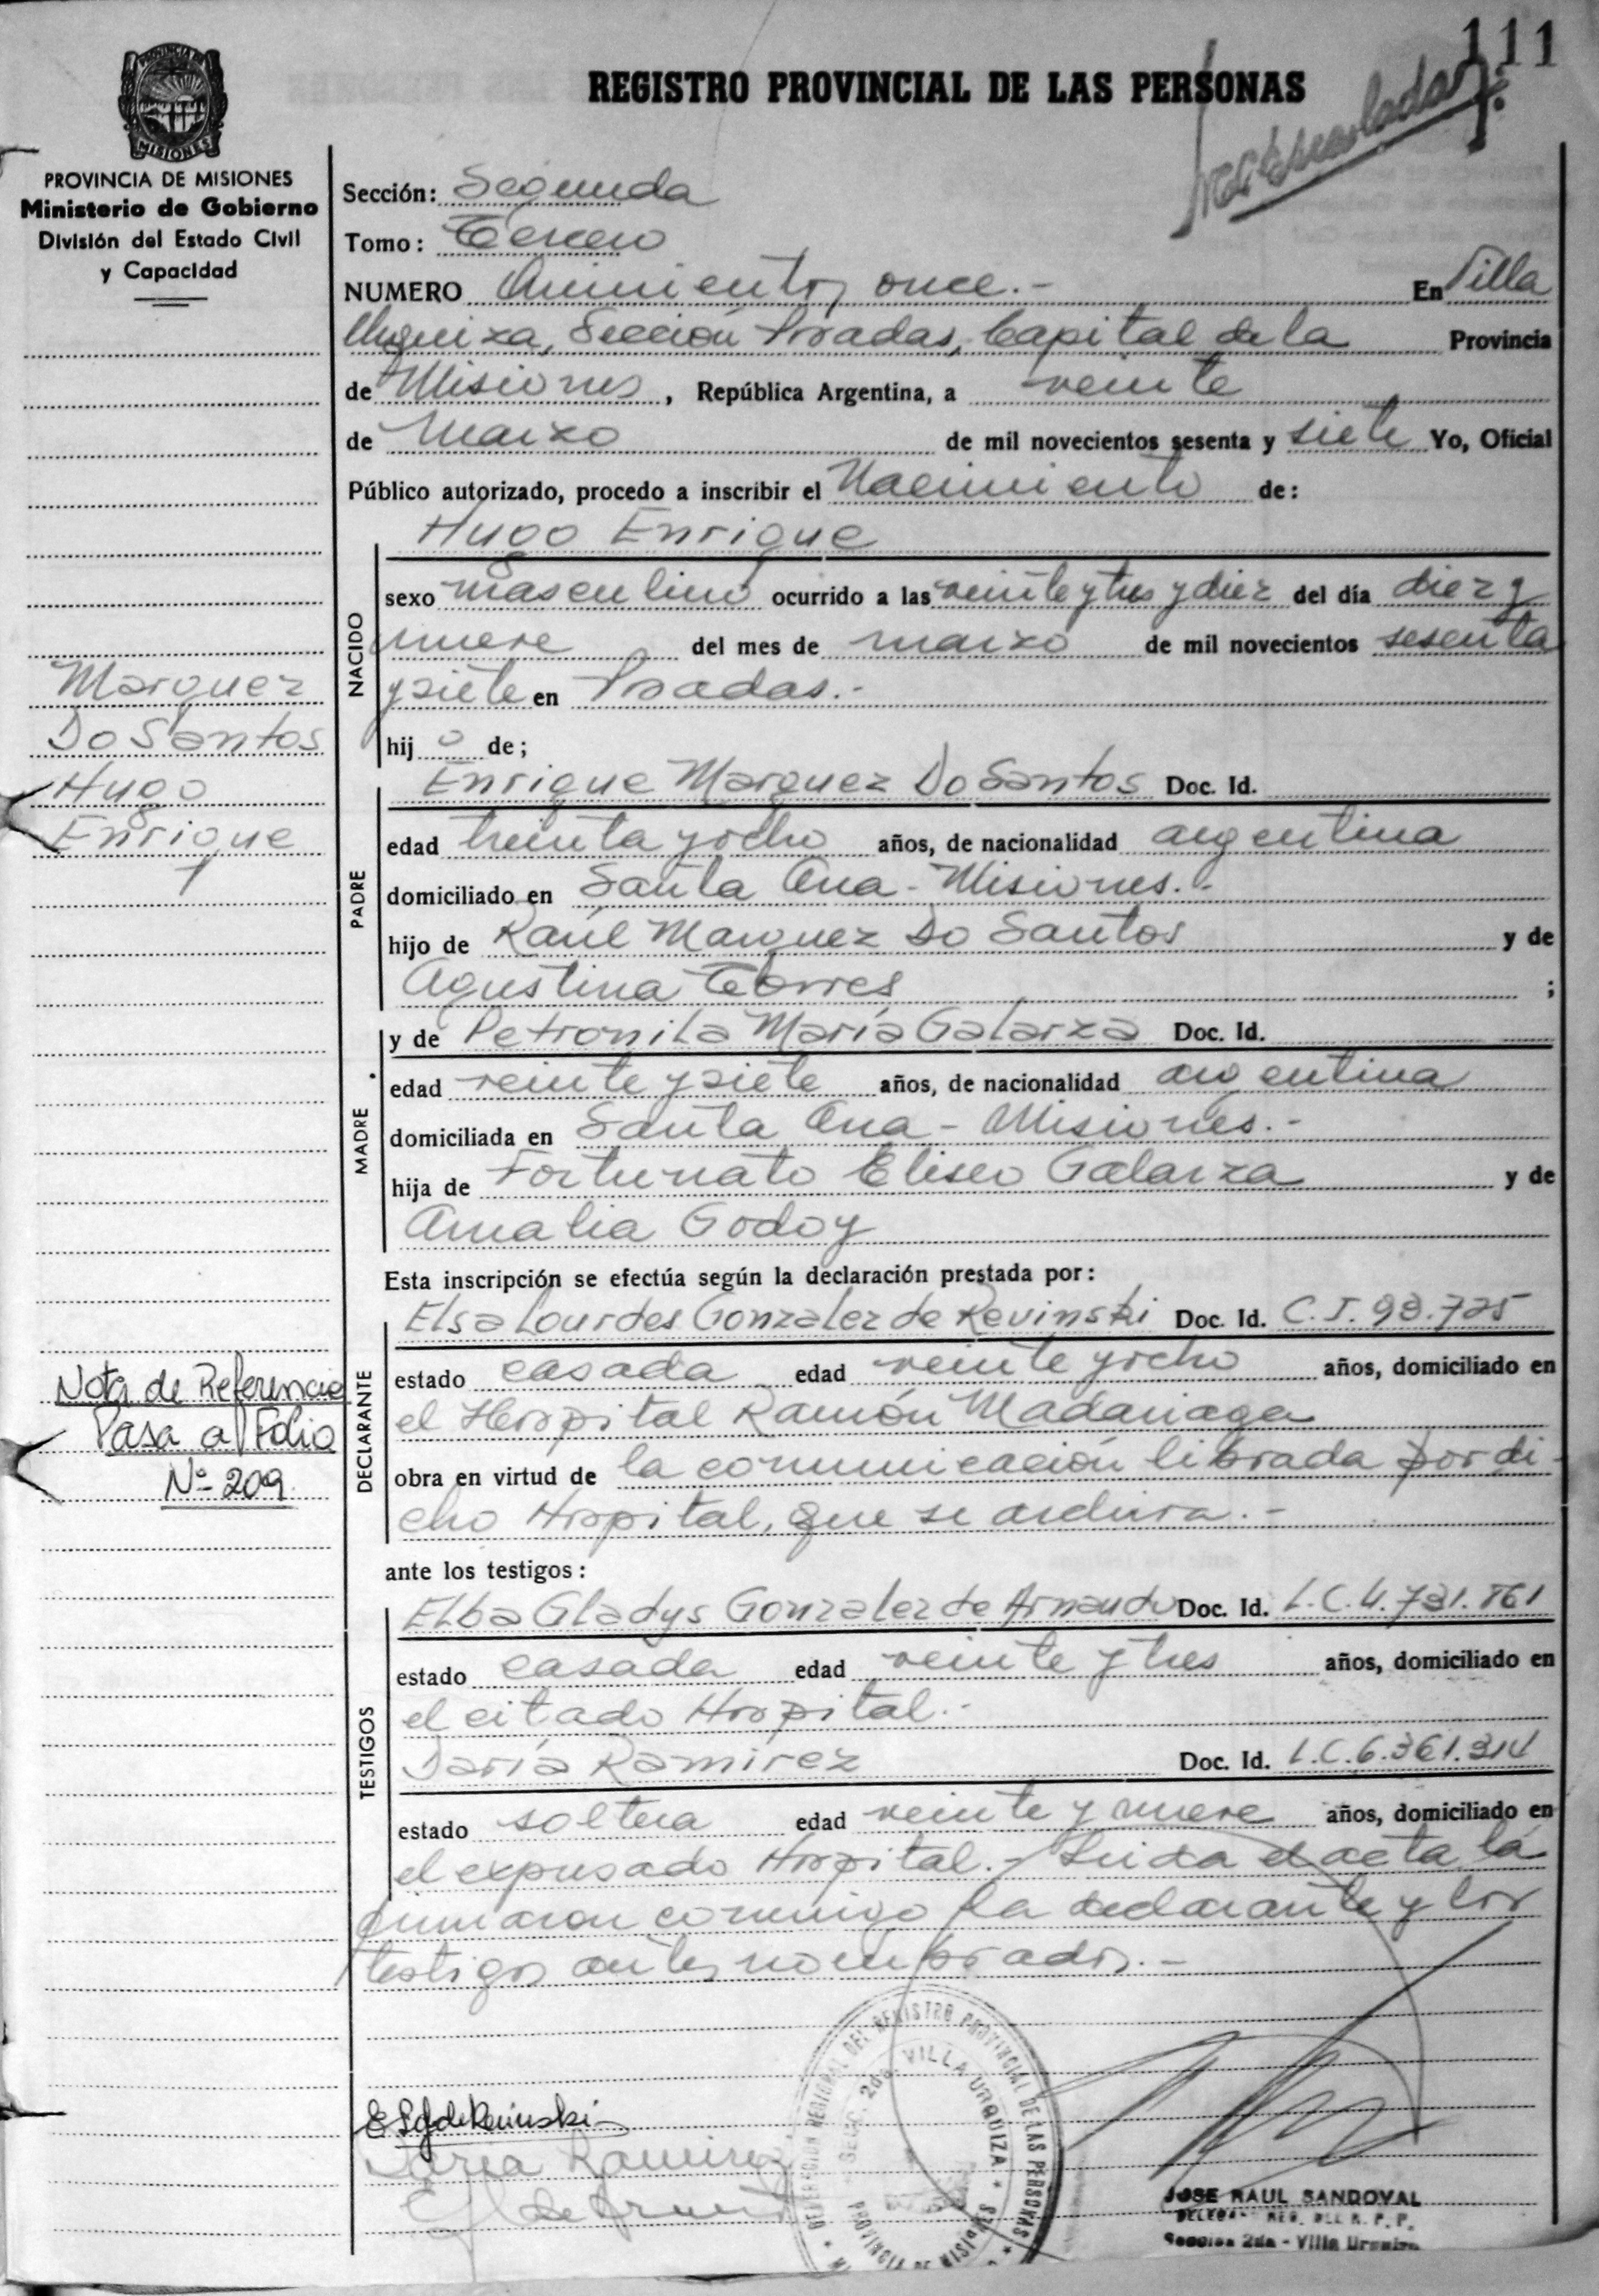 111
REGISTRO PROVINCIAL DE LAS PERSONAS
PROVINCIA DE MISIONES
MISIONES
PROVINCIA DE MISIONES
Ministerio de Gobierno
División del Estado Civil
y Capacidad
Sección: Segunda
Tomo: Tercero
NUMERO Quinientos once.- En Villa
Urquiza, Sección Posadas, Capital de la Provincia
de Misiones, República Argentina, a veinte
de Marzo de mil novecientos sesenta y siete Yo, Oficial
Público autorizado, procedo a inscribir el Nacimiento de:
Hugo Enrique
NACIDO
sexo masculino ocurrido a las veinte y tres y diez del día diez y
nueve del mes de marzo de mil novecientos sesenta
y siete en Posadas.-
hijo de;
Marquez
Do Santos
Hugo
Enrique
Enrique Marquez Do Santos Doc. Id.
PADRE
edad treinta y ocho años, de nacionalidad argentina
domiciliado en Santa Ana - Misiones.-
hijo de Raúl Marquez Do Santos y de
Agustina Torres ;
y de Petronila María Galarza Doc. Id.
MADRE
edad veinte y siete años, de nacionalidad argentina
domiciliada en Santa Ana - Misiones.-
hija de Fortunato Eliseo Galarza y de
Amalia Godoy
Esta inscripción se efectúa según la declaración prestada por:
Elsa Lourdes Gonzalez de Revinski Doc. Id. C.I. 93.725
DECLARANTE
estado casada edad veinte y ocho años, domiciliado en
el Hospital Ramón Madariaga
obra en virtud de la comunicación librada por di-
cho Hospital, que se archiva.-
Nota de Referencia
Pasa al Folio
Nº 209
ante los testigos:
Elba Gladys Gonzalez de Doc. Id. L.C. 4.731.861
TESTIGOS
estado casada edad veinte y tres años, domiciliado en
el citado Hospital.-
Daría Ramirez Doc. Id. L.C. 6.361.314
estado soltera edad veinte y nueve años, domiciliado en
el expresado Hospital.- Leída el acta la
firmaron conmigo la declarante y los
testigos antes nombrados.-
DELEGACION REGIONAL DEL REGISTRO PROVINCIAL DE LAS PERSONAS
SECC. 2da. VILLA URQUIZA
PROVINCIA DE MISIONES
E L G de Revinski
Daria Ramirez
JOSE RAUL SANDOVAL
DELEGADO REG. DEL R. P. P.
Sección 2da - Villa Urquiza